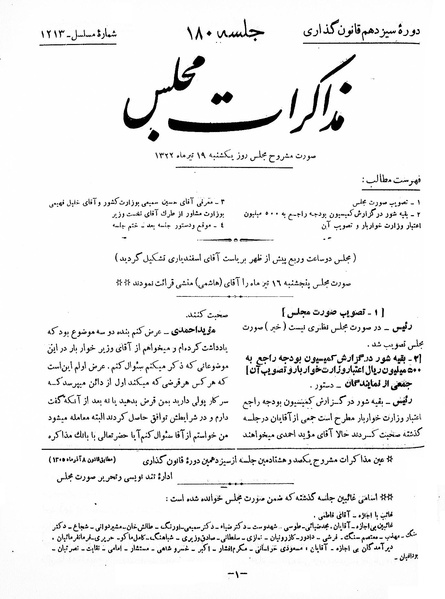 دورهٔ سیزدهم قانون گذاری
جلسه ۱۸۰
شمارهٔ مسلسل - ۱۲۱۳
مذاکرات مجلس
صورت مشروح مجلس روز یکشنبه ۱۹ تیر ماه ۱۳۲۲
فهرست مطالب:
۱ - تصویب صورت مجلس
۲ - بقیه شور در گزارش کمیسیون بودجه راجع به ۵۰۰ میلیون
اعتبار وزارت خواربار و تصویب آن
۳ - معرفی آقای حسین سمیعی بوزارت کشور و آقای خلیل فهیمی
بوزارت مشاور از طرف آقای نخست وزیر
۴ - موقع و دستور جلسه بعد - ختم جلسه
(مجلس دو ساعت و ربع پیش از ظهر بریاست آقای اسفندیاری تشکیل گردید)
صورت مجلس پنجشنبه ۱۶ تیر ماه را آقای (هاشمی) منشی قرائت نمودند **
[۱ - تصویب صورت مجلس]
رئیس - در صورت مجلس نظری نیست (خیر) صورت
مجلس تصویب شد.
[۲ - بقیه شور در گزارش کمیسیون بودجه راجع به
۵۰۰ میلیون ریال اعتبار وزارت خواربار و تصویب آن]
جمعی از نمایندگان - دستور.
رئیس - بقیه شور در گزارش کمیسیون بودجه راجع
اعتبار وزارت خواربار مطرح است جمعی از آقایان در جلسه
گذشته صحبت کردند حالا آقای مؤید احمدی میخواهند
صحبت کنند.
مؤید احمدی - عرض کنم بنده دو سه موضوع بود که
یادداشت کرده‌ام و میخواهم از آقای وزیر خواربار در این
موضوعاتی که ذکر میکنم سئوال کنم. عرض اولم این است
که هر کس هر قرضی که میکند اول از دائن میپرسد که
سرکار پولی دارید بمن قرض بدهید یا نه بعد از آنکه گفت
دارم و در شرایطش توافق حاصل کردند البته معامله میشود
من خواستم از آقا سئوال کنم آیا حضرتعالی با بانک مذاکره
* عین مذاکرات مشروح یکصد و هشتادمین جلسه از سیزدهمین دورهٔ قانون گذاری
(مطابق قانون ۸ آذر ماه ۱۳۰۵)
ادارهٔ تند نویسی و تحریر صورت مجلس
** اسامی غائبین جلسه گذشته که ضمن صورت مجلس خوانده شده است:
غائب با اجازه - آقای فاطمی